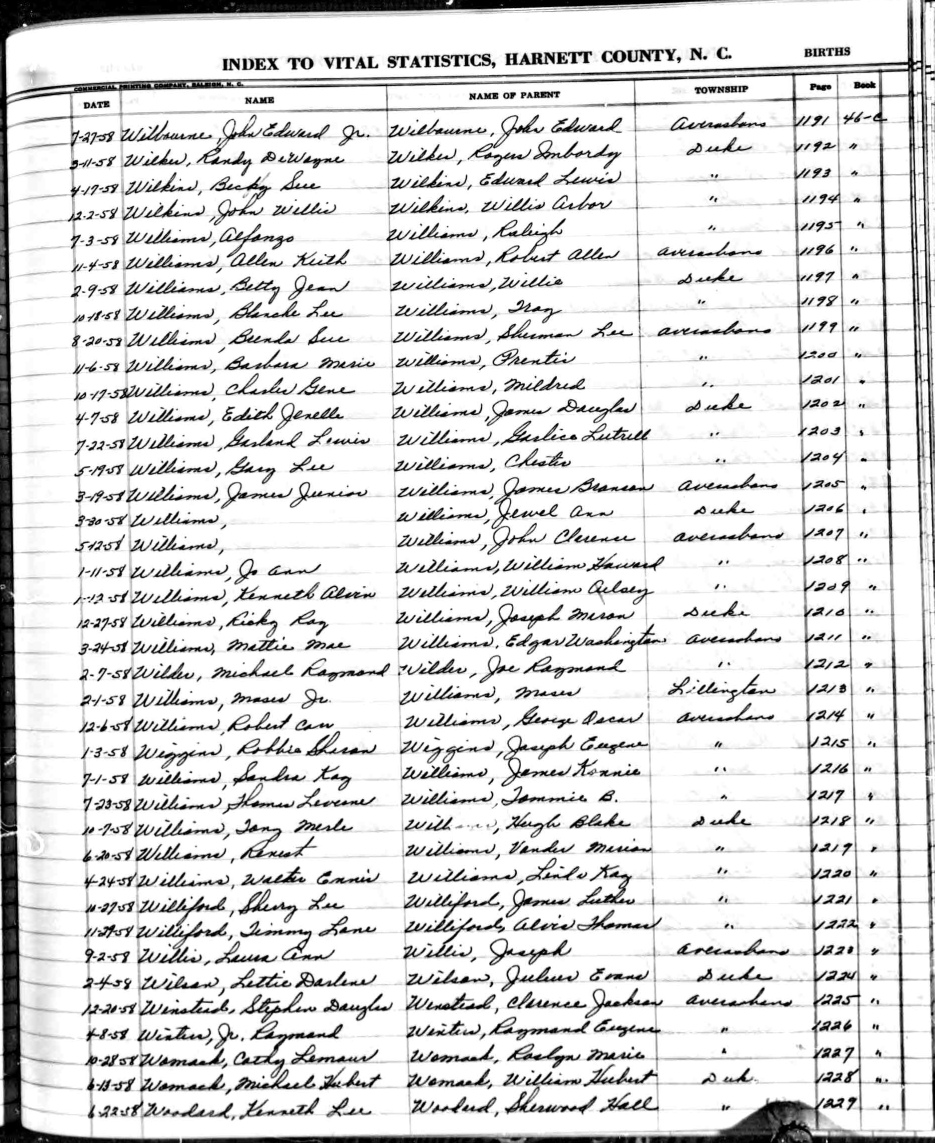 INDEX TO VITAL STATISTICS, HARNETT COUNTY, N. C. BIRTHS
COMMERCIAL PRINTING COMPANY, RALEIGH, N. C.
DATE NAME NAME OF PARENT TOWNSHIP Page Book
7-27-58 Wilbourne, John Edward Jr. Wilbourne, John Edward Averasboro 1191 46-C
3-11-58 Wilkes, Randy DeWayne Wilkes, Rogers Duke 1192 "
4-17-58 Wilkins, Becky Sue Wilkins, Edward Lewis " 1193 "
12-2-58 Wilkins, John Willis Wilkins, Willis Arbor " 1194 "
7-3-58 Williams, Alfonzo Williams, Raleigh " 1195 "
11-4-58 Williams, Allen Keith Williams, Robert Allen Averasboro 1196 "
2-9-58 Williams, Betty Jean Williams, Willie Duke 1197 "
10-18-58 Williams, Blanche Lee Williams, Troy " 1198 "
8-20-58 Williams, Brenda Sue Williams, Sherman Lee Averasboro 1199 "
11-6-58 Williams, Barbara Marie Williams, Prentis " 1200 "
10-17-58 Williams, Charles Gene Williams, Mildred " 1201 "
4-7-58 Williams, Edith Jenelle Williams, James Douglas Duke 1202 "
7-22-58 Williams, Garland Lewis Williams, Garlice Lutrell " 1203 "
5-19-58 Williams, Gary Lee Williams, Chester " 1204 "
3-19-58 Williams, James Junior Williams, James Branson Averasboro 1205 "
3-30-58 Williams, Williams, Jewel Ann Duke 1206 "
5-12-58 Williams, Williams, John Clarence Averasboro 1207 "
1-11-58 Williams, Jo Ann Williams, William Howard " 1208 "
1-12-58 Williams, Kenneth Alvin Williams, William " 1209 "
12-27-58 Williams, Ricky Ray Williams, Joseph Meron Duke 1210 "
3-24-58 Williams, Mattie Mae Williams, Edgar Washington Averasboro 1211 "
2-7-58 Wilder, Michael Raymond Wilder, Joe Raymond " 1212 "
2-1-58 Williams, Moses Jr. Williams, Moses Lillington 1213 "
12-6-58 Williams, Robert Carr Williams, George Oscar Averasboro 1214 "
1-3-58 Wiggins, Robbie Sharon Wiggins, Joseph Eugene " 1215 "
7-1-58 Williams, Sandra Kay Williams, James Konnie " 1216 "
7-23-58 Williams, Thomas Leverne Williams, Tommie B. " 1217 "
10-7-58 Williams, Tony Merle Hugh Blake Duke 1218 "
6-20-58 Williams, Renest Williams, Vander Merion " 1219 "
4-24-58 Williams, Walter Ennis Williams, Linda Kay " 1220 "
10-27-58 Williford, Sherry Lee Williford, James Luther " 1221 "
11-29-58 Williford, Timmy Lane Williford, Alvis Thomas " 1222 "
9-2-58 Willis, Laura Ann Willis, Joseph Averasboro 1223 "
2-4-58 Wilson, Lettie Darlene Wilson, Julius Evans Duke 1224 "
12-20-58 Winstead, Stephen Douglas Winstead, Clarence Jackson Averasboro 1225 "
4-8-58 Winters, Jr. Raymond Winters, Raymond Eugene " 1226 "
10-28-58 Womack, Cathy Lemaur Womack, Roslyn Marie " 1227 "
6-13-58 Womack, Michael Hubert Womack, William Hubert Duke 1228 "
6-22-58 Woodard, Kenneth Lee Woodard, Sherwood Hall " 1229 "